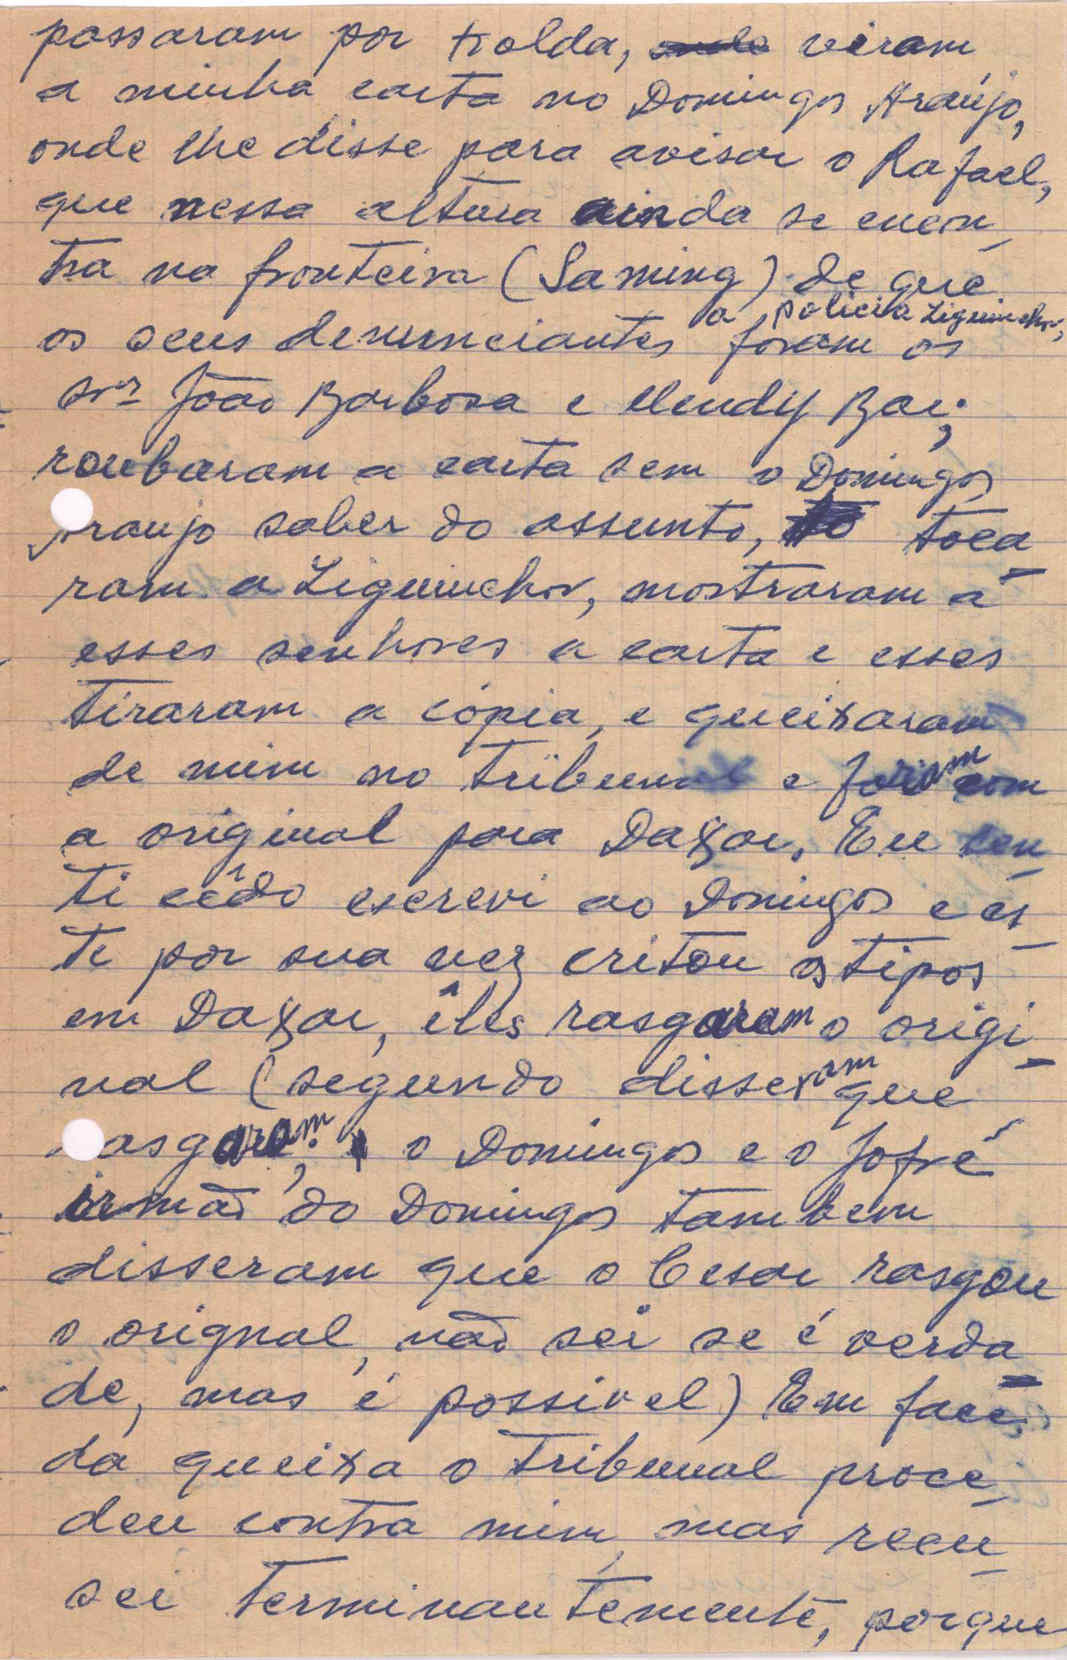 passaram por Kolda, viram
a minha carta no Domingos Araújo,
onde lhe disse para avisar o Rafael,
que nessa altura ainda se encon_
tra na fronteira (Saming) de que
a policia Ziguinchor,
os seus denunciantes foram os
snrs João Barbosa e Mendy Bar;
roubaram a carta sem o Domingos
Araujo saber do assunto, toca_
ram a Ziguinchor, mostraram a
esses senhores a carta e esses
tiraram a cópia, e queixaram
de mim no tribunal e foram com
a original para Dakar. Eu sen_
ti cêdo escrevi ao Domingos e es_
te por sua vez critou os tipos
em Dakar, êles rasgaram o origi_
nal (segundo disseram que
rasgaram; o Domingos e o Jofré
irmão do Domingos tambem
disseram que o Cesar rasgou
o orignal, não sei se é verda_
de, mas é possivel) Em face
da queixa o tribunal proce_
deu contra mim, mas recu_
sei terminantemente, porque